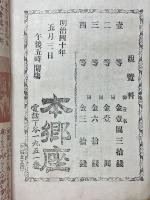 観覧料
壹等 金壹圓三拾錢
二等 金壹圓
三等 金六拾錢
四等 金三拾錢
明治四十年
五月三日
午後五時開場
本郷座
電話下谷一九五一番